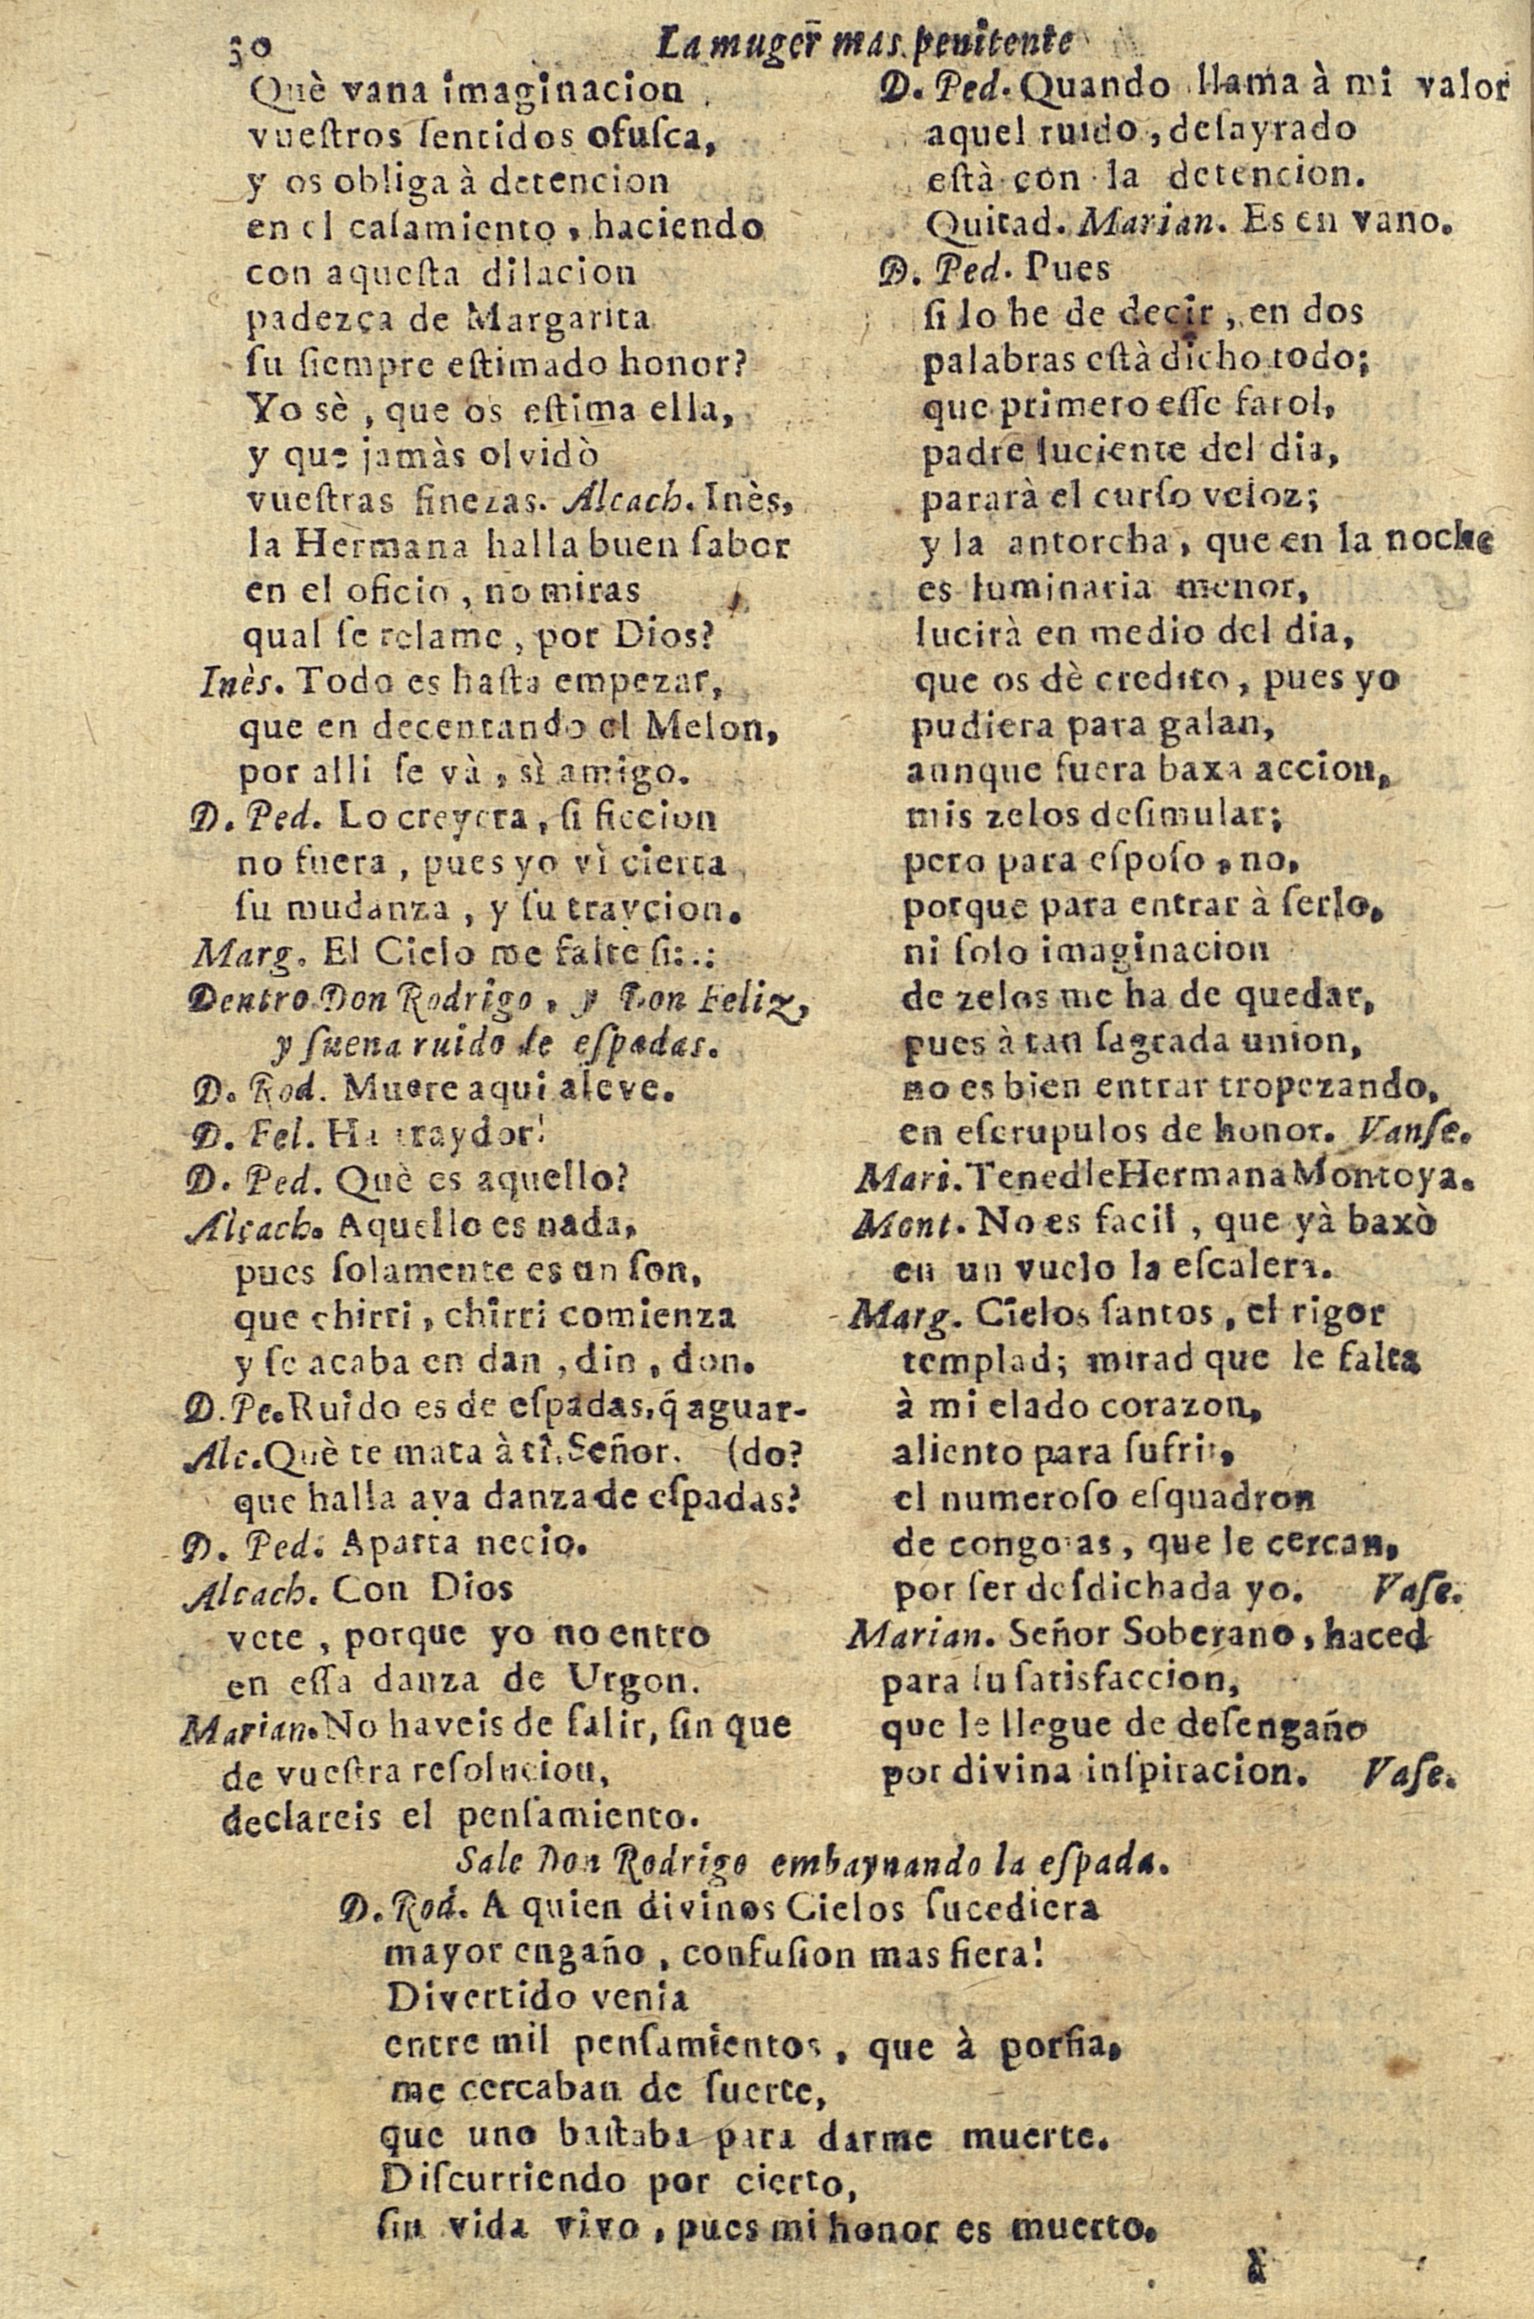 30
La muger mas penitente
Què vana imaginacion
vuestros sentidos ofusca,
y os obliga à detencion
en el casamiento, haciendo
con aquesta dilacion
padezca de Margarita
su siempre estimado honor?
Yo sè, que os estima ella,
y que jamàs olvidò
vuestras finezas. Alcach. Inès,
la Hermana halla buen sabor
en el oficio, no miras
qual se relame, por Dios?
Inès. Todo es hasta empezar,
que en decentando el Melon,
por alli se và, sì amigo.
D. Ped. Lo creyera, si ficcion
no fuera, pues yo vì cierta
su mudanza, y su traycion.
Marg. El Cielo me falte si:.:
Dentro Don Rodrigo, y Don Feliz,
y suena ruido de espadas.
D. Rod. Muere aqui aleve.
D. Fel. Ha traydor!
D. Ped. Què es aquello?
Alcach. Aquello es nada,
pues solamente es un son,
que chirri, chirri comienza
y se acaba en dan, din, don.
D. Pe. Ruido es de espadas, q̃ aguar-
Alc. Què te mata à tì, Señor. (do?
que halla aya danza de espadas?
D. Ped. Aparta necio.
Alcach. Con Dios
vete, porque yo no entro
en essa danza de Urgon.
Marian. No haveis de salir, sin que
de vuestra resolucion,
declareis el pensamiento.
D. Ped. Quando llama à mi valor
aquel ruido, desayrado
està con la detencion.
Quitad. Marian. Es en vano.
D. Ped. Pues
si lo he de decir, en dos
palabras està dicho todo;
que primero esse farol,
padre luciente del dia,
pararà el curso veloz;
y la antorcha, que en la noche
es luminaria menor,
lucirà en medio del dia,
que os dè credito, pues yo
pudiera para galan,
aunque fuera baxa accion,
mis zelos desimular;
pero para esposo, no,
porque para entrar à serlo,
ni solo imaginacion
de zelos me ha de quedar,
pues à tan sagrada union,
no es bien entrar tropezando,
en escrupulos de honor. Vanse.
Mari. Tenedle Hermana Montoya.
Mont. No es facil, que yà baxò
en un vuelo la escalera.
Marg. Cielos santos, el rigor
templad; mirad que le falta
à mi elado corazon,
aliento para sufrir,
el numeroso esquadron
de congojas, que le cercan,
por ser desdichada yo. Vase.
Marian. Señor Soberano, haced
para su satisfaccion,
que le llegue de desengaño
por divina inspiracion. Vase.
Sale Don Rodrigo embaynando la espada.
D. Rod. A quien divinos Cielos sucediera
mayor engaño, confusion mas fiera!
Divertido venia
entre mil pensamientos, que à porfia,
me cercaban de suerte,
que uno bastaba para darme muerte.
Discurriendo por cierto,
sin vida vivo, pues mi honor es muerto.